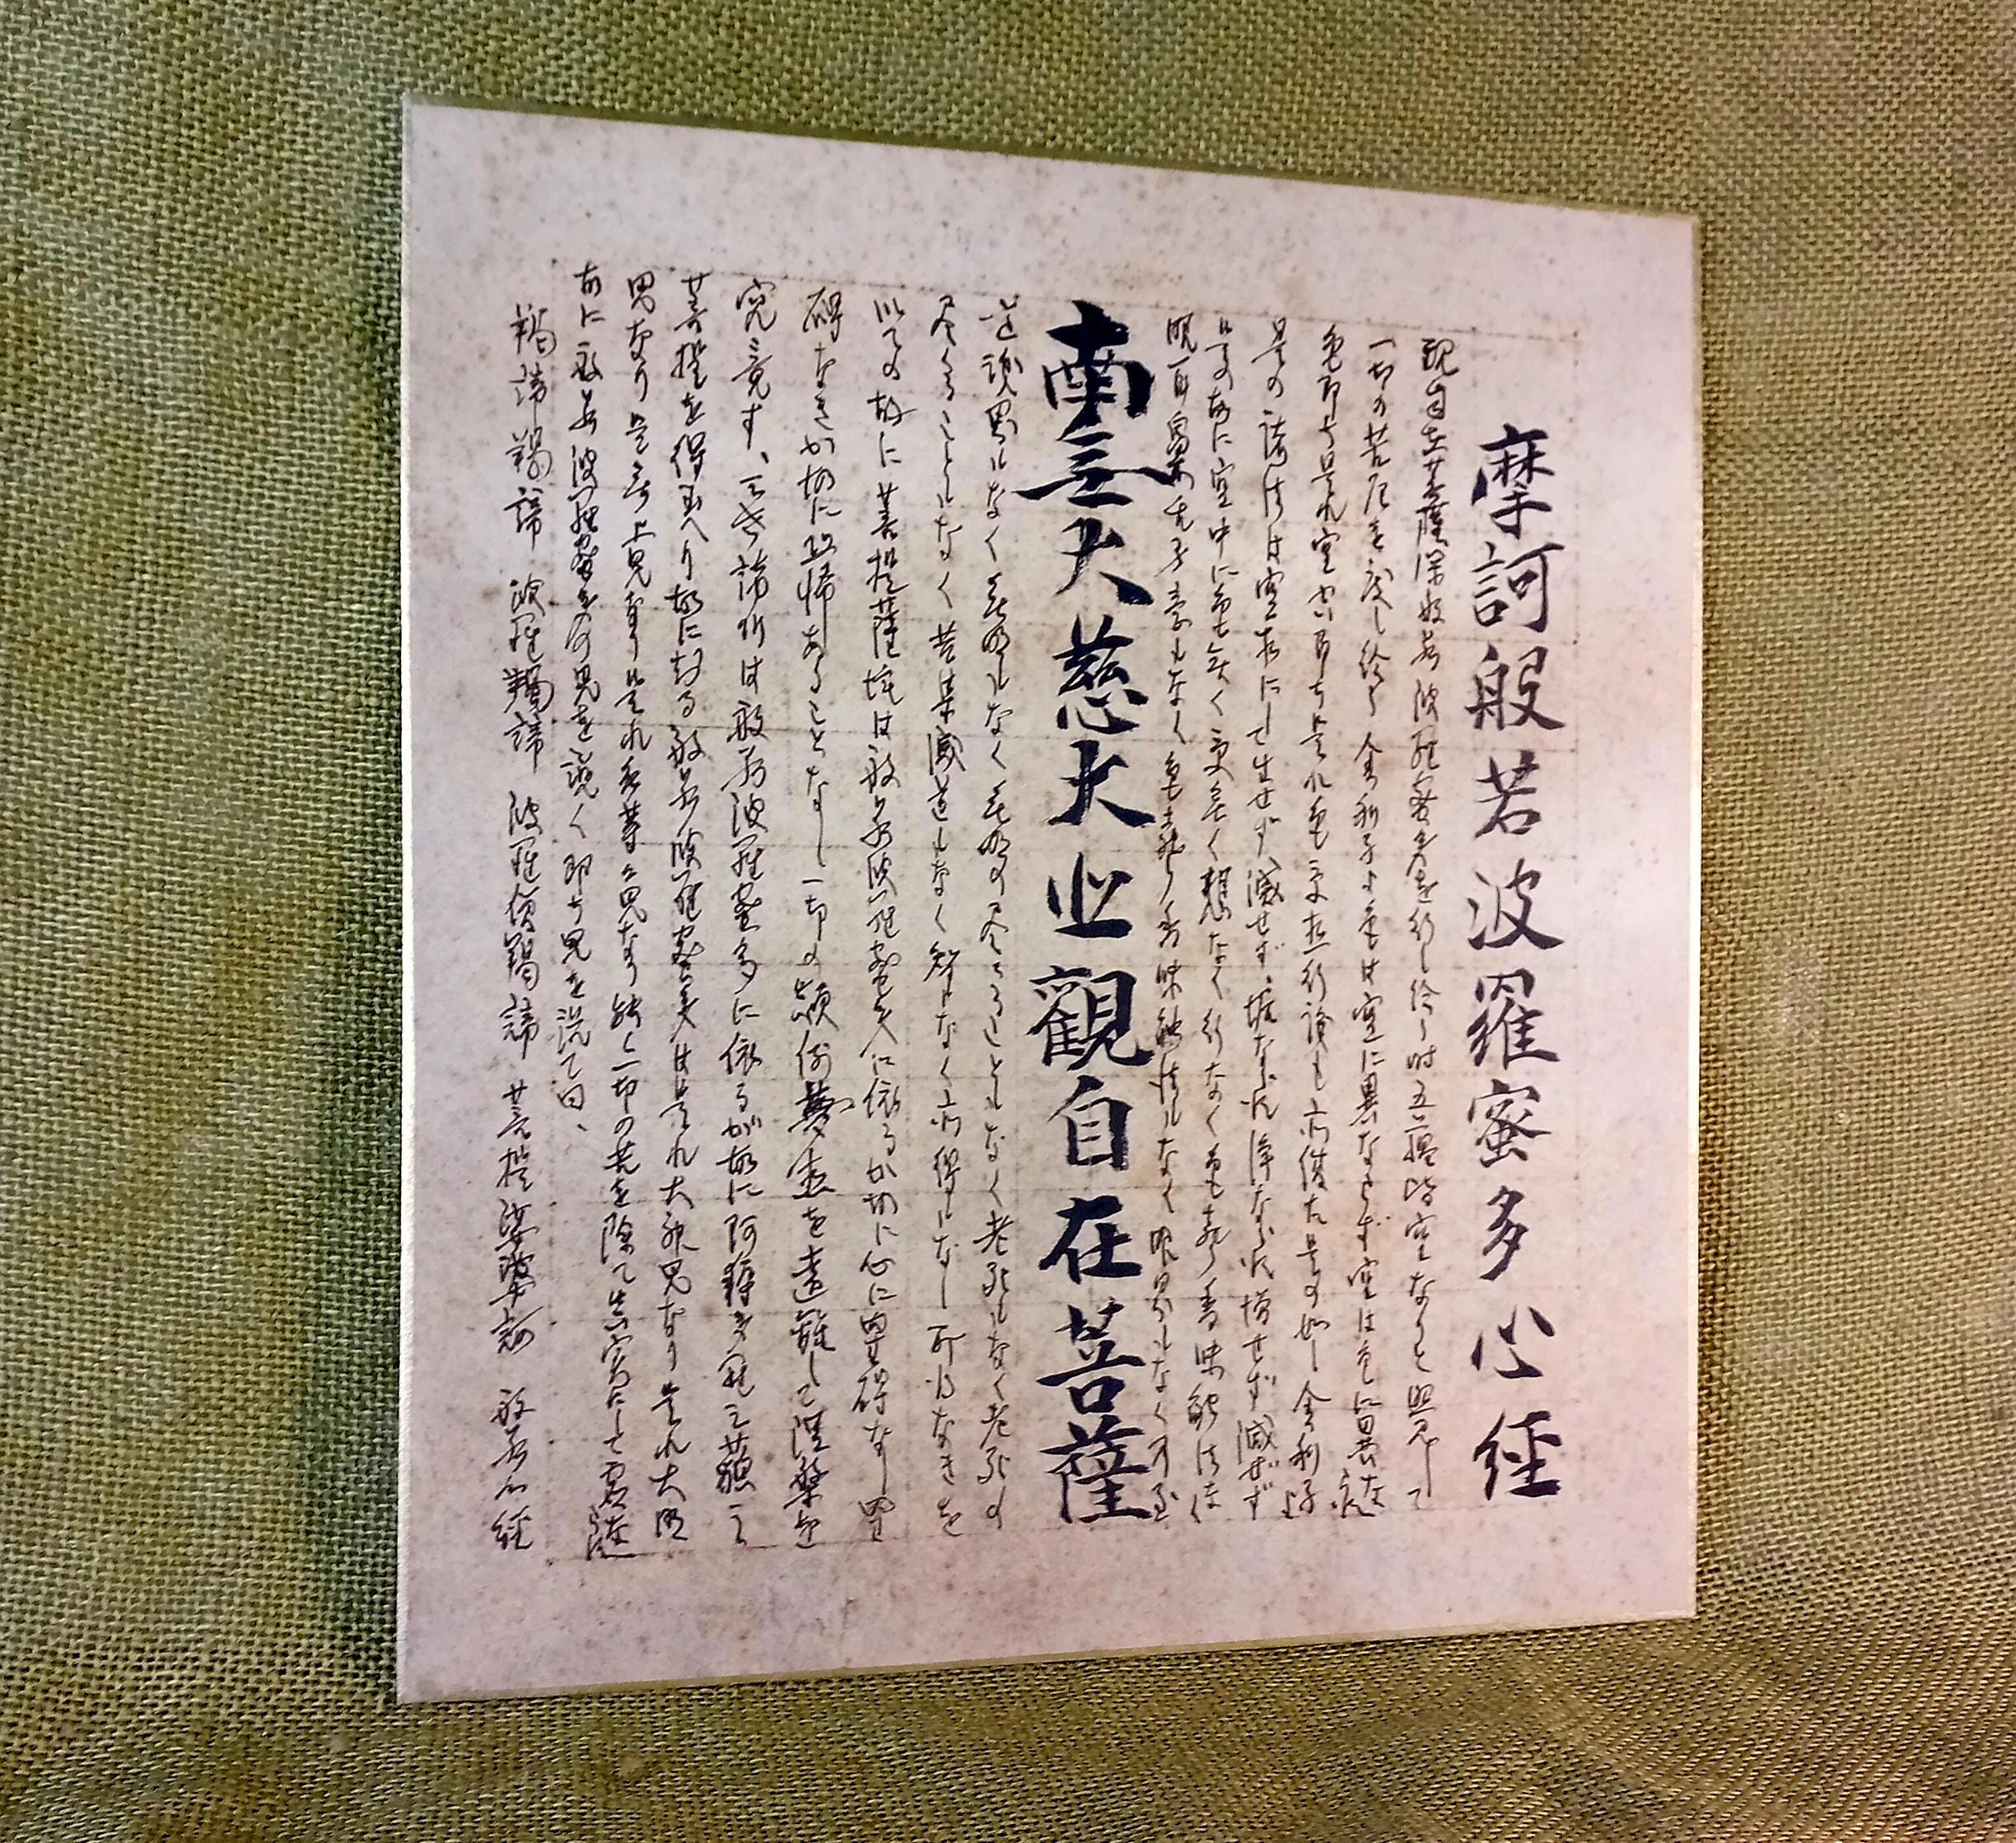 摩訶般若波羅蜜多心経
観自在菩薩深般若波羅蜜多を行じ給ふ時五蘊皆空なりと照見して
一切の苦厄を度し給ふ舎利子よ色は空に異ならず空は色に異ならず
色即ち是れ空空即ち是れ色受想行識も亦復た是の如し舎利子よ
是の諸法は空相にして生せず滅せず、垢ならず浄ならず増せず減ぜず
是の故に空中に色も無く受無く想なく行なく色も声も香味触法なく
眼耳鼻舌身意もなく色も声も香味触法もなく眼界もなく乃至
南無大慈大悲觀自在菩薩
意識界もなく無明もなく無明の尽くることもなく老死もなく老死の
尽くることもなく苦集滅道もなく智もなく亦得もなし所得なきを
以ての故に菩提薩埵は般若波羅蜜多に依るが故に心に罣碍なし罣
碍なきが故に恐怖あることなし一切の顛倒夢想を遠離して涅槃を
究竟す、三世諸仏は般若波羅蜜多に依るが故に阿耨多羅三藐三
菩提を得玉へり故に知る般若波羅蜜多は是れ大神咒なり是れ大明
咒なり是無上咒なり是れ無等々咒なり能く一切の苦を除て真実にして虚ならず
故に般若波羅蜜多の咒を説く即ち咒を説て曰、
羯諦羯諦 波羅羯諦 波羅僧羯諦 菩提娑婆訶 般若心経